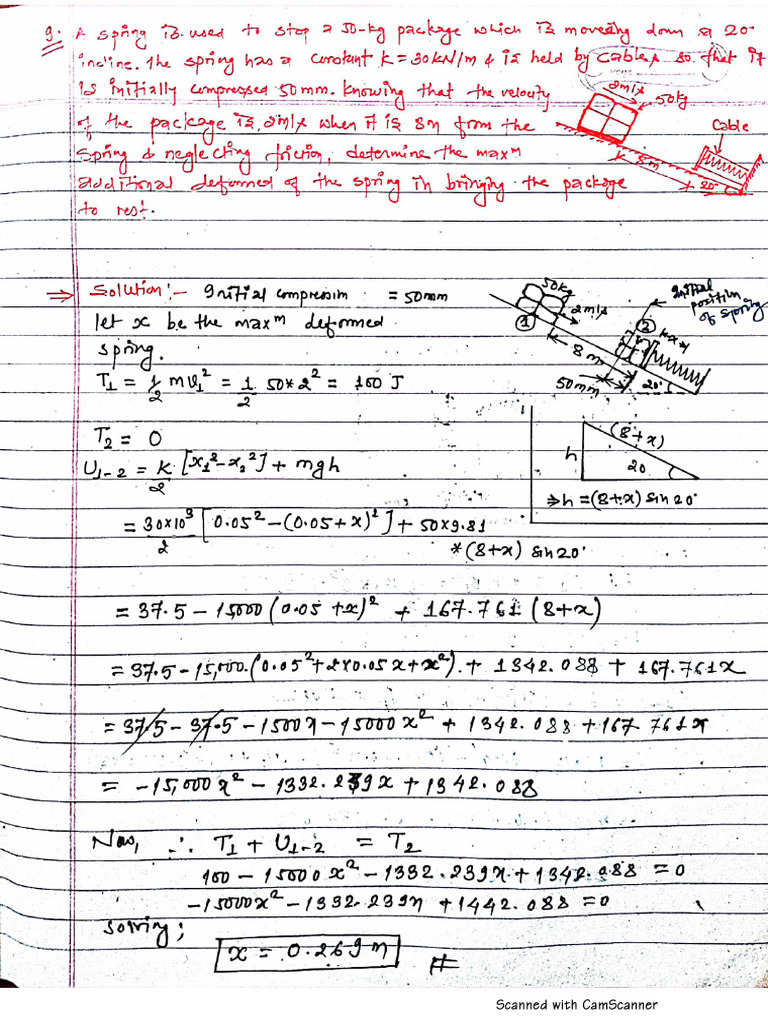 9. A spring is used to stop a 50-kg package which is moveing down a 20°
incline. The spring has a constant K = 30KN/m & is held by cables so that it
is initially compressed 50mm. Knowing that the velocity
of the package is 2m/s when it is 8m from the
spring & neglecting friction, determine the maxᵐ
additional deformed of the spring in bringing the package
to rest.
2m/s
50kg
Cable
8m
20°
⇒ Solution:- Initial compression = 50mm
let x be the maxᵐ deformed
spring.
T₁ = 1/2 mv₁² = 1/2 50*2² = 100 J
T₂ = 0
U₁₋₂ = K/2 [x₁²-x₂²] + mgh
= 30×10³/2 [0.05² - (0.05+x)²] + 50×9.81
*(8+x) sin20°
50kg
2m/s
①
②
8m
50mm
20°
Initial
position
of spring
(8+x)
h
20
⇒ h = (8+x) sin20°
= 37.5 - 15,000 (0.05 + x)² + 167.761 (8+x)
= 37.5 - 15,000.(0.05²+2×0.05x+x²). + 1342.088 + 167.761x
= 37.5 - 37.5 - 1500x - 15000x² + 1342.088 + 167.761x
= -15,000x² - 1332.239x + 1342.088
Now, ∴ T₁ + U₁₋₂ = T₂
100 - 15000x² - 1332.239x + 1342.088 = 0
-15000x² - 1332.239x + 1442.088 = 0
Solving;
x = 0.269m #
Scanned with CamScanner